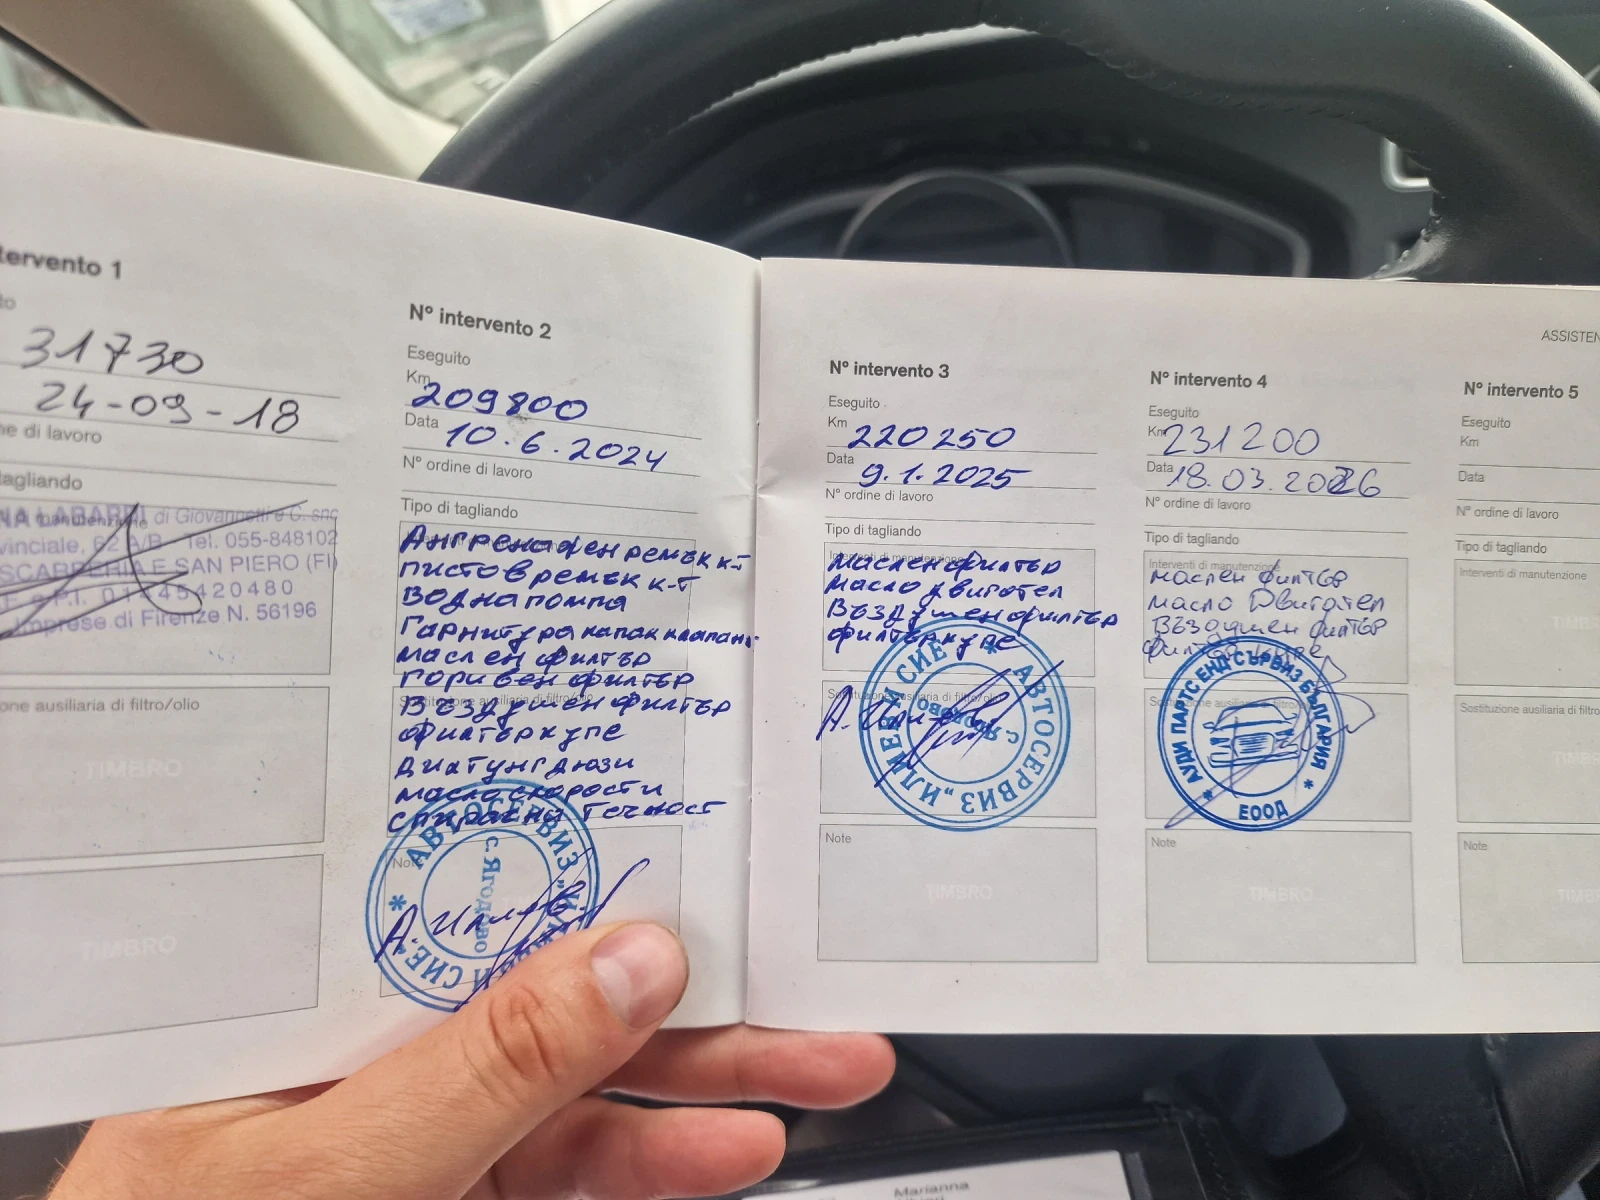 tervento 1
to
31730
24-09-18
ne di lavoro
tagliando
di Giovannetti e C. snc
vinciale, 62 A/B - Tel. 055-848102
SCARPERIA E SAN PIERO (FI)
Imprese di Firenze N. 56196
one ausiliaria di filtro/olio
TIMBRO
TIMBRO
N° intervento 2
Eseguito
Km 209800
Data 10.6.2024
N° ordine di lavoro
Tipo di tagliando
Ангренажен ремък к-т
пистов ремък к-т
Водна помпа
Гарнитура капак клапани
маслен филтър
Горивен филтър
Въздушен филтър
филтър купе
Диатунг дюзи
масло скорости
спирачна течност
Note
АВТОСЕРВИЗ „ИЛИЕВИ СИЕ“
с. Ягодово
А. Илиев
ASSISTEN
N° intervento 3
Eseguito
Km 220250
Data 9.1.2025
N° ordine di lavoro
Tipo di tagliando
Interventi di manutenzione
Маслен филтър
масло двигател
Въздушен филтър
филтър купе
Sostituzione ausiliaria di filtro/olio
АВТОСЕРВИЗ „ИЛИЕВИ СИЕ“
с. Ягодово
Note
TIMBRO
N° intervento 4
Eseguito
Km 231200
Data 18.03.2026
N° ordine di lavoro
Tipo di tagliando
Interventi di manutenzione
маслен филтър
масло Двигател
Въздушен филтър
филтър купе
Sostituzione ausiliaria di filtro/
АУДИ ПАРТС ЕНД СЪРВИЗ БЪЛГАРИЯ
ЕООД
Note
TIMBRO
N° intervento 5
Eseguito
Km
Data
N° ordine di lavoro
Tipo di tagliando
Interventi di manutenzione
Sostituzione ausiliaria di filtro
Note
Marianna